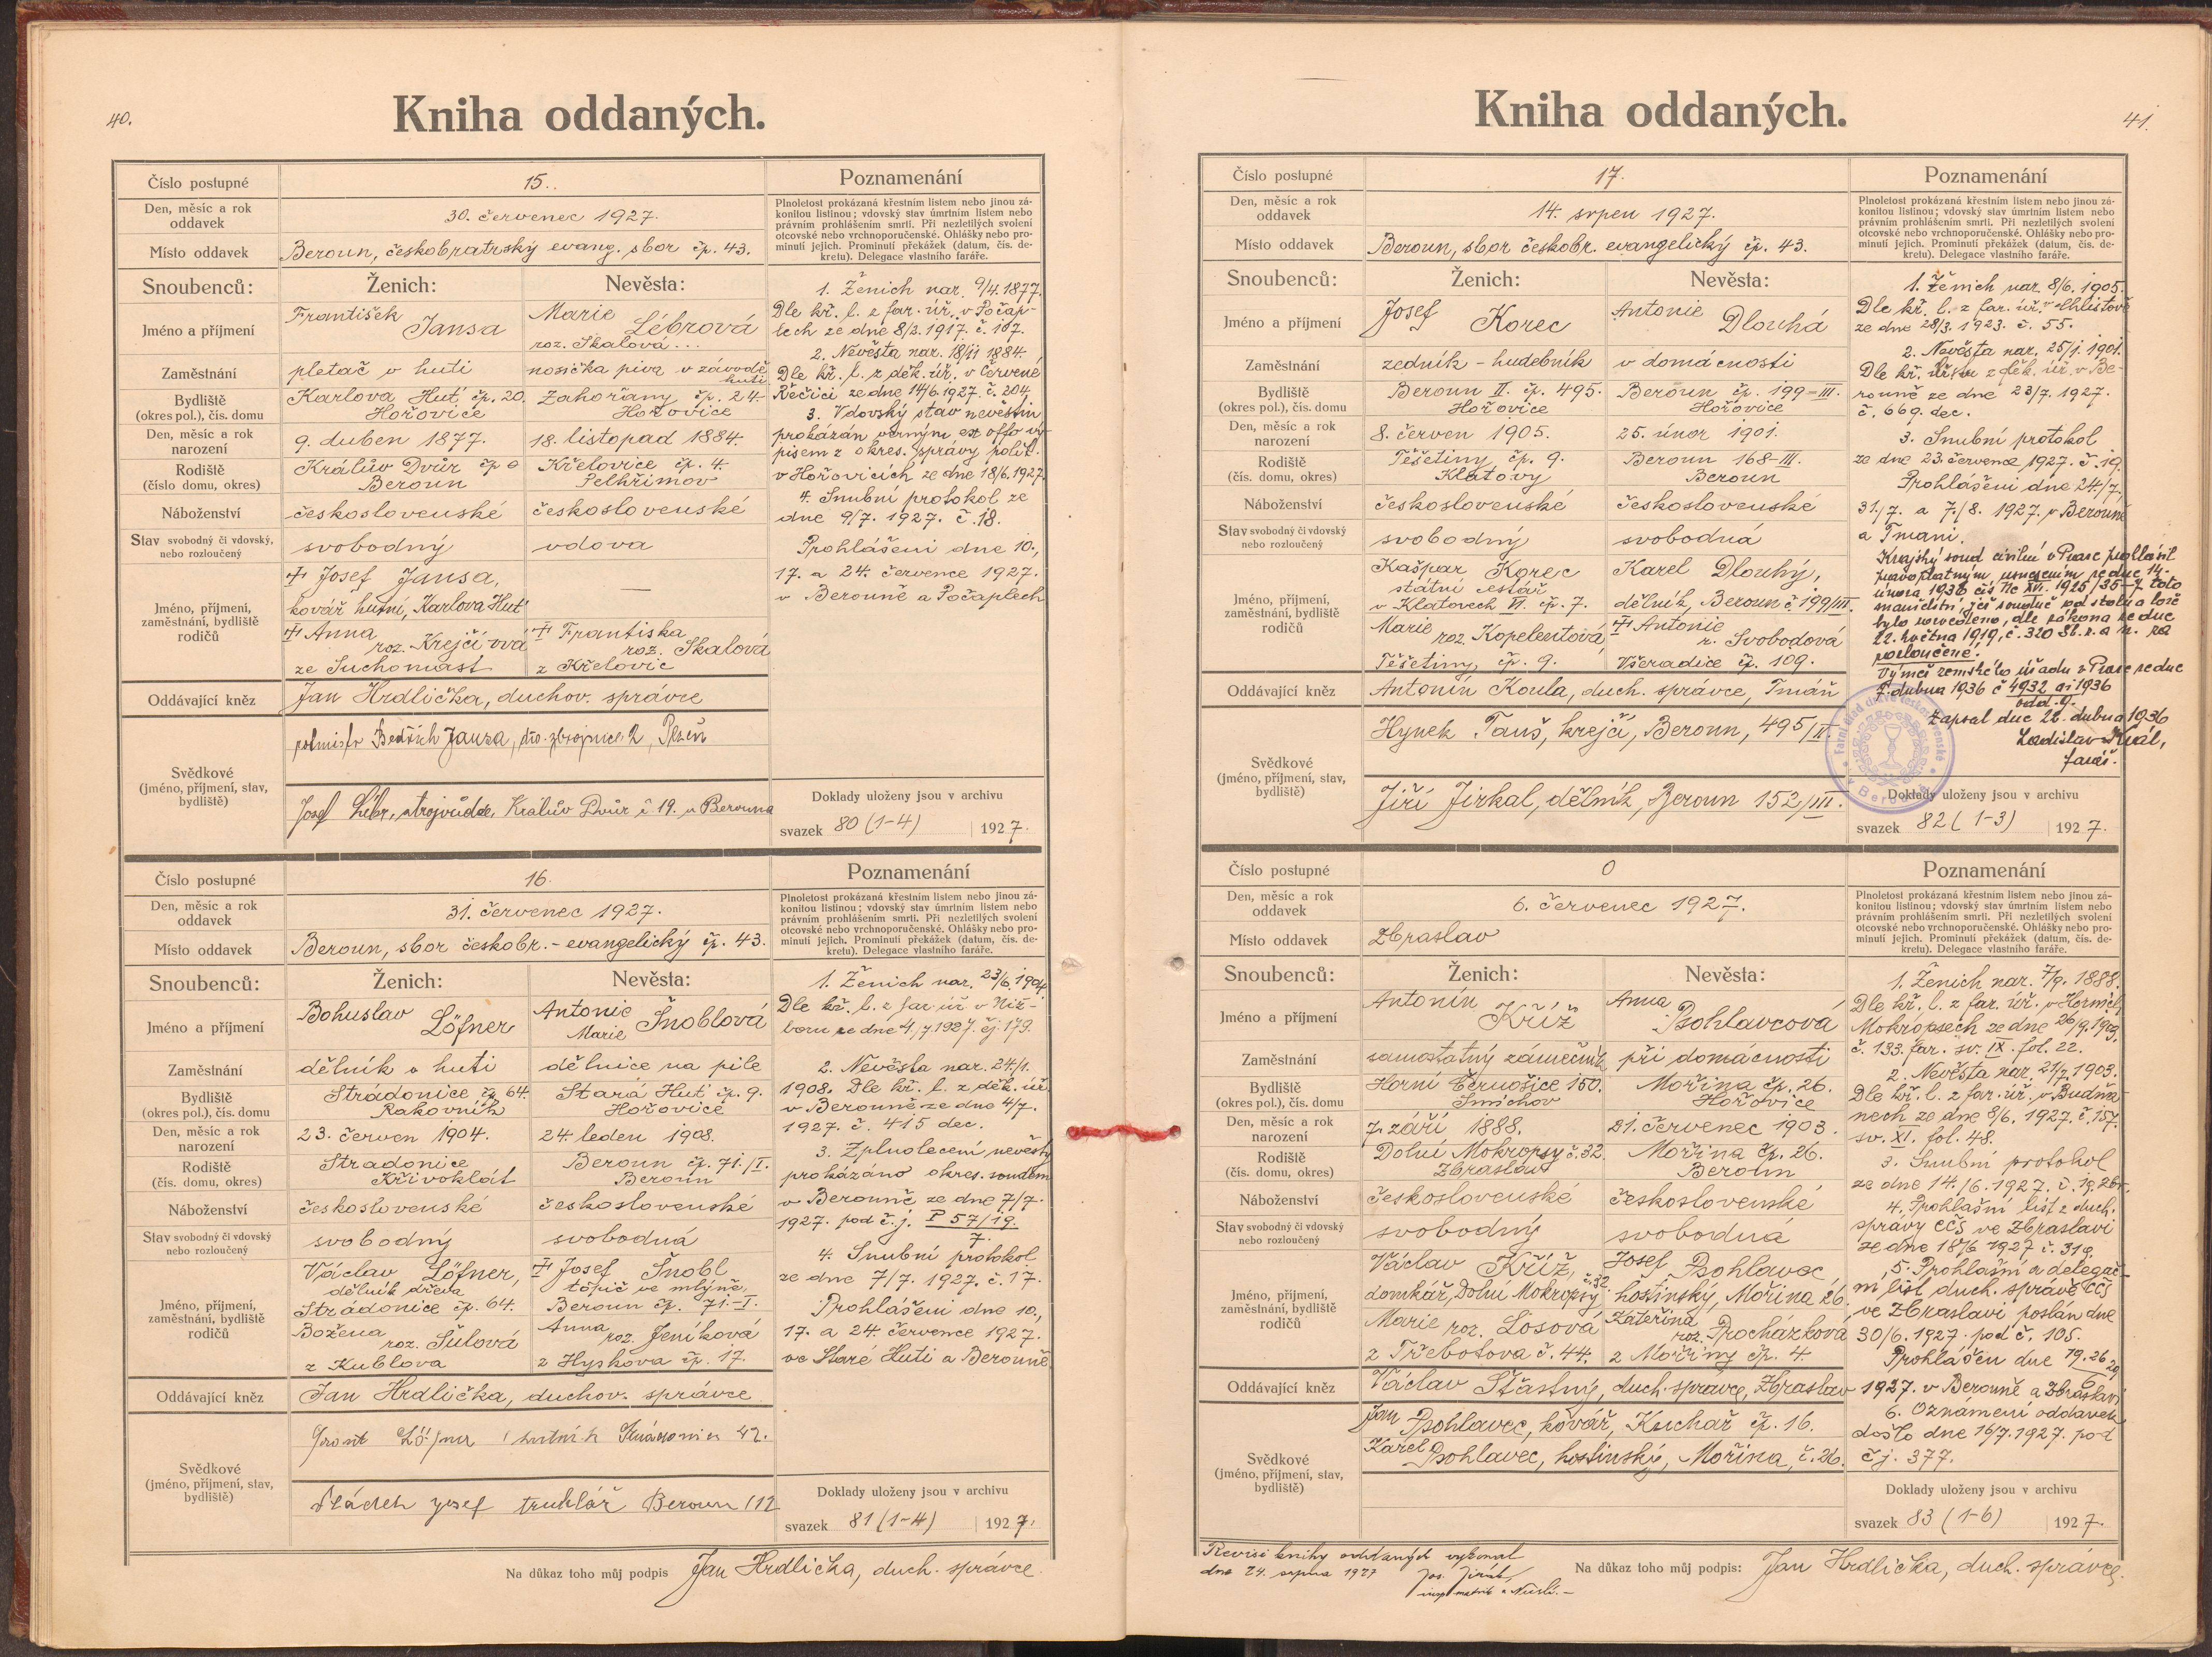 40.
Kniha oddaných.
Číslo postupné
15.
Poznamenání
Den, měsíc a rok
oddavek
30. červenec 1927.
Plnoletost prokázaná křestním listem nebo jinou zá-
konitou listinou; vdovský stav úmrtním listem nebo
právním prohlášením smrti. Při nezletilých svolení
otcovské nebo vrchnoporučenské. Ohlášky nebo pro-
minutí jejich. Prominutí překážek (datum, čís. de-
kretu). Delegace vlastního faráře.
Místo oddavek
Beroun, českobratrský evang. sbor čp. 43.
Snoubenců:
Ženich:
Nevěsta:
Jméno a příjmení
František
Jansa
Marie
Lébrová
roz. Skalová...
Zaměstnání
pletač v huti
nosička piva v závodě
huti
Bydliště
(okres pol.), čís. domu
Karlova Huť čp. 20.
Hořovice
Zahořany čp. 24.
Hořovice
Den, měsíc a rok
narození
9. duben 1877.
18. listopad 1884.
Rodiště
(číslo domu, okres)
Králův Dvůr čp
Beroun
Křelovice čp. 4.
Pelhřimov
Náboženství
československé
československé
Stav svobodný či vdovský,
nebo rozloučený
svobodný
vdova
Jméno, příjmení,
zaměstnání, bydliště
rodičů
Josef Jansa,
kovář hutní, Karlova Huť
Anna
roz. Krejčí-ová
ze Suchomast
—
Frantiska
roz. Skalová
z Křelovic
Oddávající kněz
Jan Hrdlička, duchov. správce
Svědkové
(jméno, příjmení, stav,
bydliště)
Bedřich Jansa, zbrojnice 2, Plzeň
Josef Lébr, strojvůdce, Králův Dvůr č 19. u Berouna
1. Ženich nar. 9/4. 1877.
Dle kř. l. z far. úř. v Počap-
lech ze dne 8/2. 1917. č. 107.
2. Nevěsta nar. 18/11 1884.
Dle kř. l. z děk. úř. v Červené
Řečici ze dne 14/6. 1927. č. 204.
3. Vdovský stav nevěstin
prokázán verným ex offo vý-
pisem z okres. správy polit.
v Hořovicích ze dne 18/6. 1927.
4. Snubní protokol ze
dne 9/7. 1927. č. 18.
Prohlášení dne 10.,
17. a 24. července 1927.
v Berouně a Počaplech
Doklady uloženy jsou v archivu
svazek 80 (1-4) 1927.
Číslo postupné
16.
Poznamenání
Den, měsíc a rok
oddavek
31. červenec 1927.
Plnoletost prokázaná křestním listem nebo jinou zá-
konitou listinou; vdovský stav úmrtním listem nebo
právním prohlášením smrti. Při nezletilých svolení
otcovské nebo vrchnoporučenské. Ohlášky nebo pro-
minutí jejich. Prominutí překážek (datum, čís. de-
kretu). Delegace vlastního faráře.
Místo oddavek
Beroun, sbor českobr.-evangelický čp. 43.
Snoubenců:
Ženich:
Nevěsta:
Jméno a příjmení
Bohuslav
Löfner
Antonie
Marie
Šnoblová
Zaměstnání
dělník v huti
dělnice na pile
Bydliště
(okres pol.), čís. domu
Stradonice čp. 64.
Rakovník
Stará Huť čp. 9.
Hořovice
Den, měsíc a rok
narození
23. červen 1904.
24. leden 1908.
Rodiště
(čís. domu, okres)
Stradonice
Křivoklát
Beroun čp. 71./I.
Beroun
Náboženství
československé
československé
Stav svobodný či vdovský
nebo rozloučený
svobodný
svobodná
Jméno, příjmení,
zaměstnání, bydliště
rodičů
Václav Löfner,
dělník dřeva
Stradonice čp. 64.
Božena
roz. Šulová
z Kublova
Josef Šnobl
topič ve mlýně,
Beroun čp. 71.-I.
Anna
roz. Jeníková
z Hyskova čp. 17.
Oddávající kněz
Jan Hrdlička, duchov. správce
Svědkové
(jméno, příjmení, stav,
bydliště)
Löfner hutník 42.
Sládek Josef truhlář Beroun 112
1. Ženich nar. 23/6. 1904.
Dle kř. l. z far. úř. v Niž-
boru ze dne 4./7. 1927. čj. 179.
2. Nevěsta nar. 24/1.
1908. Dle kř. l. z děk. úř.
v Berouně ze dne 4/7.
1927. č. 415 dec.
3. Zplnoletení nevěsty
prokázáno okres. soudem
v Berouně ze dne 7/7.
1927. pod č. j. P 57/19.
7.
4. Snubní protokol
ze dne 7/7. 1927. č. 17.
Prohlášení dne 10.,
17. a 24. července 1927.
ve Staré Huti a Berouně
Doklady uloženy jsou v archivu
svazek 81 (1-4) 1927.
Na důkaz toho můj podpis Jan Hrdlička, duch. správce.
41.
Kniha oddaných.
Číslo postupné
17.
Poznamenání
Den, měsíc a rok
oddavek
14. srpen 1927.
Plnoletost prokázaná křestním listem nebo jinou zá-
konitou listinou; vdovský stav úmrtním listem nebo
právním prohlášením smrti. Při nezletilých svolení
otcovské nebo vrchnoporučenské. Ohlášky nebo pro-
minutí jejich. Prominutí překážek (datum, čís. de-
kretu). Delegace vlastního faráře.
Místo oddavek
Beroun, sbor českobr. evangelický čp. 43.
Snoubenců:
Ženich:
Nevěsta:
Jméno a příjmení
Josef
Korec
Antonie
Dlouhá
Zaměstnání
zedník - hudebník
v domácnosti
Bydliště
(okres pol.), čís. domu
Beroun II. čp. 495.
Hořovice
Beroun čp. 199-III.
Hořovice
Den, měsíc a rok
narození
8. červen 1905.
25. únor 1901.
Rodiště
(čís. domu, okres)
Těšetiny čp. 9.
Klatovy
Beroun 168-III.
Beroun
Náboženství
československé
československé
Stav svobodný či vdovský
nebo rozloučený
svobodný
svobodná
Jméno, příjmení,
zaměstnání, bydliště
rodičů
Kašpar Korec
státní cestář
v Klatovech VI. čp. 7.
Marie
roz. Kopelentová
Těšetiny, čp. 9.
Karel Dlouhý,
dělník, Beroun č 199/III.
Antonie
r. Svobodová
Všeradice čp. 109.
Oddávající kněz
Antonín Koula, duch. správce, Tmáň
Svědkové
(jméno, příjmení, stav,
bydliště)
Hynek Tauš, krejčí, Beroun, 495/II.
Jiří Jirkal, dělník, Beroun 152/III.
1. Ženich nar. 8/6. 1905.
Dle kř. l. z far. úř. v Chlistově
ze dne 28/3. 1923. č. 55.
2. Nevěsta nar. 25/1. 1901.
Dle kř. listu z děk. úř. v Be-
rouně ze dne 23/7. 1927.
č. 669. dec.
3. Snubní protokol
ze dne 23. července 1927. č. 19.
Prohlášení dne 24./7.,
31./7. a 7./8. 1927. v Berouně
a Tmani.
Krajský soud civilní v Praze prohlásil
pravoplatným usnesením ze dne 14.
února 1936 čís Nc XVI. 1915/35-7 toto
manželství, jež soudně od stolu a lože
bylo rozvedeno, dle zákona ze dne
22. května 1919, č. 320 Sb. z. a n. za
rozloučené.
Výměr zemského úřadu v Praze ze dne
7. dubna 1936 č 4932 ai 1936
odd. 9.
Zapsal dne 22. dubna 1936
Ladislav Král,
farář.
Farní úřad církve československé
v Berouně
Doklady uloženy jsou v archivu
svazek 82 (1-3) 1927.
Číslo postupné
0
Poznamenání
Den, měsíc a rok
oddavek
6. červenec 1927.
Plnoletost prokázaná křestním listem nebo jinou zá-
konitou listinou; vdovský stav úmrtním listem nebo
právním prohlášením smrti. Při nezletilých svolení
otcovské nebo vrchnoporučenské. Ohlášky nebo pro-
minutí jejich. Prominutí překážek (datum, čís. de-
kretu). Delegace vlastního faráře.
Místo oddavek
Zbraslav
Snoubenců:
Ženich:
Nevěsta:
Jméno a příjmení
Antonín
Kříž
Anna
Psohlavcová
Zaměstnání
samostatný zámečník
při domácnosti
Bydliště
(okres pol.), čís. domu
Horní Černošice 150.
Smíchov
Mořina čp. 26.
Hořovice
Den, měsíc a rok
narození
7. září 1888.
21. červenec 1903.
Rodiště
(čís. domu, okres)
Dolní Mokropsy č. 32.
Zbraslav
Mořina čp. 26.
Beroun
Náboženství
československé
československé
Stav svobodný či vdovský
nebo rozloučený
svobodný
svobodná
Jméno, příjmení,
zaměstnání, bydliště
rodičů
Václav Kříž,
domkář, Dolní Mokropsy č. 32
Marie roz. Losová
z Třebotova č. 44.
Josef Psohlavec
hostinský, Mořina 26.
Kateřina
roz. Procházková
z Mořiny čp. 4.
Oddávající kněz
Václav Šťastný, duch. správce, Zbraslav
Svědkové
(jméno, příjmení, stav,
bydliště)
Jan Psohlavec, kovář, Kuchař čp. 16.
Karel Psohlavec, hostinský, Mořina, č. 26.
1. Ženich nar. 7/9. 1888.
Dle kř. l. z far. úř. v Horních
Mokropsech ze dne 26/9. 1903.
č. 133. far. sv. IX. fol. 22.
2. Nevěsta nar. 21/7. 1903.
Dle kř. l. z far. úř. v Budňa-
nech ze dne 8/6. 1927. č. 157.
sv. XI. fol. 48.
3. Snubní protokol
ze dne 14./6. 1927. č.
4. Prohlašní list z duch.
správy CČS ve Zbraslavi
ze dne 18/6 1927 č. 319.
5. Prohlašní a delegač-
ní list duch. správě CČS
ve Zbraslavi poslán dne
30/6. 1927. pod č. 105.
Prohlášen dne 19. 26
1927. v Berouně a Zbraslavi
6. Oznámení oddavek
došlo dne 16/7. 1927. pod
čj. 377.
Doklady uloženy jsou v archivu
svazek 83 (1-6) 1927.
Revisi knihy oddaných vykonal
dne 24. srpna 1927
Na důkaz toho můj podpis: Jan Hrdlička, duch. správce.